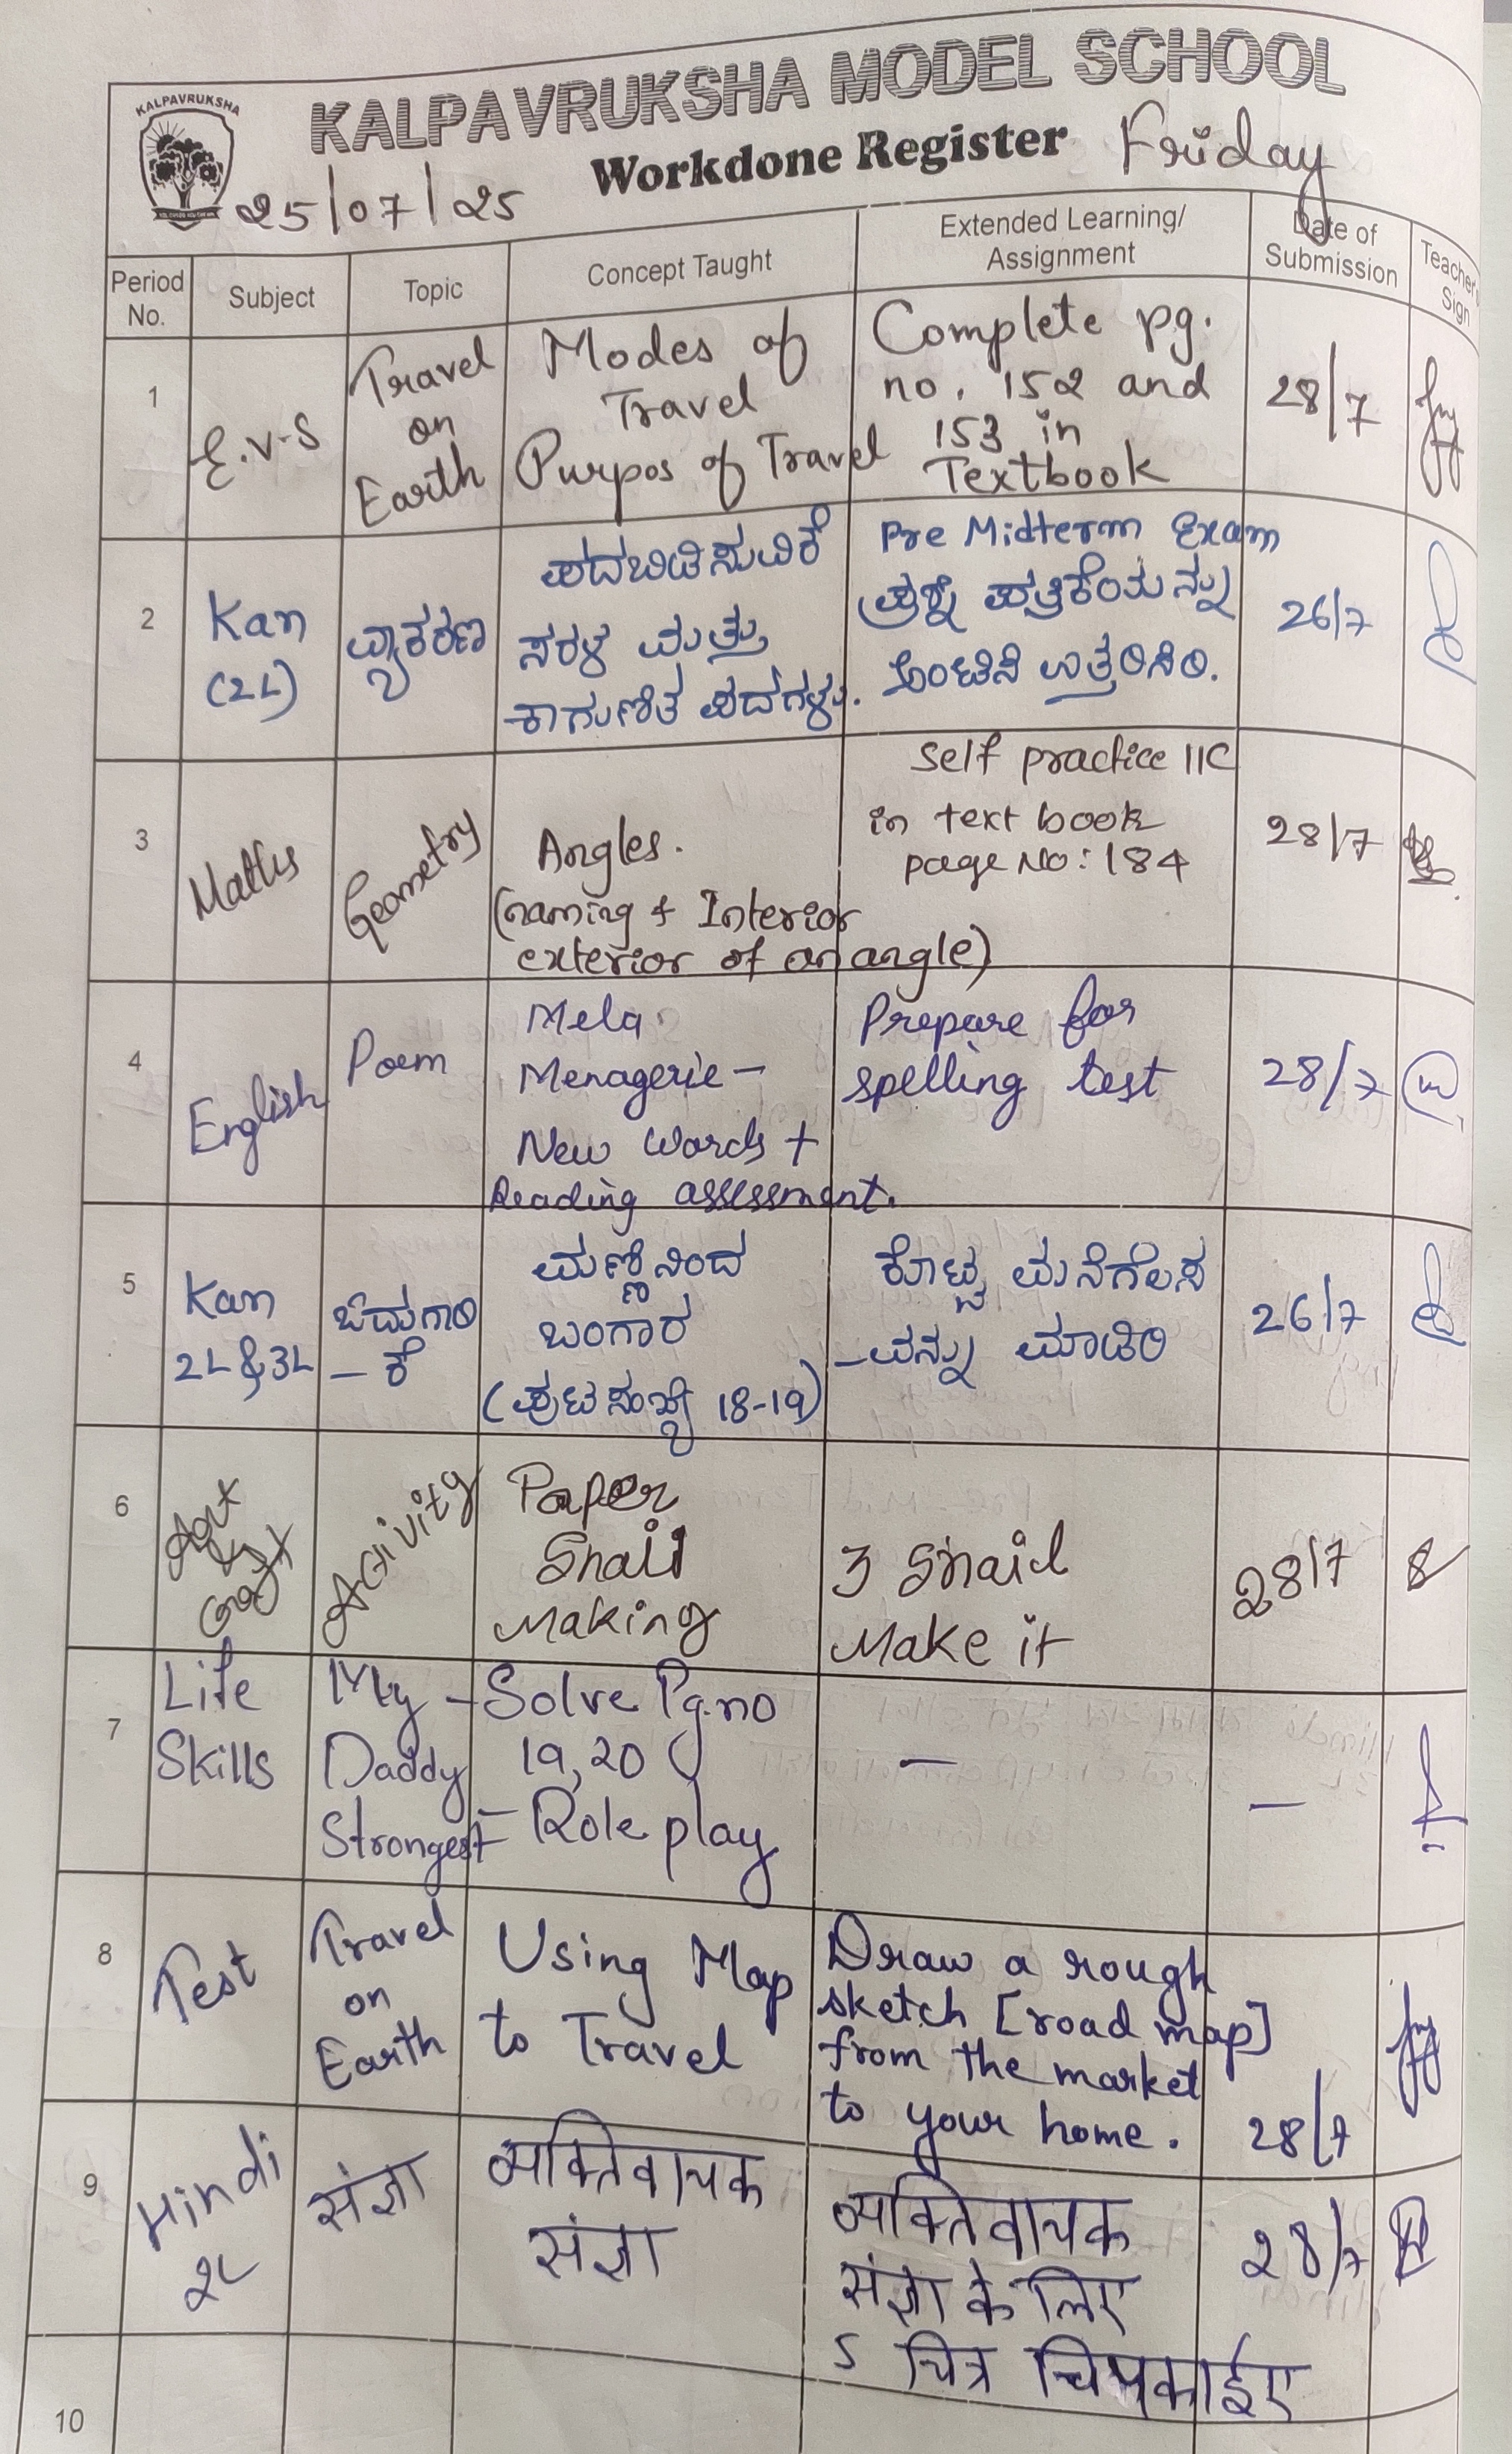 KALPAVRUKSHA
KALPAVRUKSHA MODEL SCHOOL
Workdone Register Friday
25/07/25
Period No.
Subject
Topic
Concept Taught
Extended Learning/
Assignment
Date of
Submission
Teacher's
Sign
1
E.V-S
Travel
on
Earth
Modes of
Travel
Purpos of Travel
Complete pg.
no. 152 and
153 in
Textbook
28/7
2
Kan
(2L)
ವ್ಯಾಕರಣ
ಪದಬಿಡಿಸುವಿಕೆ
ಸರಳ ಮತ್ತು
ಕಾಗುಣಿತ ಪದಗಳು.
Pre Midterm Exam
ಪ್ರಶ್ನೆ ಪತ್ರಿಕೆಯನ್ನು
ಅಂಟಿಸಿ ಉತ್ತರಿಸಿರಿ.
26/7
3
Maths
Geometry
Angles.
(naming & Interior
exterior of an angle)
Self practice 11C
in text book
page No: 184
28/7
4
English
Poem
Mela
Menagerie -
New Words +
Reading assessment.
Prepare for
spelling test
28/7
5
Kan
2L & 3L
ಓದುಗಾರಿ
- ಕೆ
ಮಣ್ಣಿನಿಂದ
ಬಂಗಾರ
(ಪುಟ ಸಂಖ್ಯೆ 18-19)
ಕೊಟ್ಟ ಮನೆಗೆಲಸ
-ವನ್ನು ಮಾಡಿರಿ
26/7
6
Art
&
Craft
Activity
Paper
Snail
Making
3 Snail
Make it
28/7
7
Life
Skills
My
Daddy
Strongest
- Solve Pg.no
19, 20
- Role play
-
-
8
Test
Travel
on
Earth
Using Map
to Travel
Draw a rough
sketch [road map]
from the market
to your home.
28/7
9
Hindi
2L
संज्ञा
व्यक्तिवाचक
संज्ञा
व्यक्तिवाचक
संज्ञा के लिए
5 चित्र चिपकाईए
28/7
10